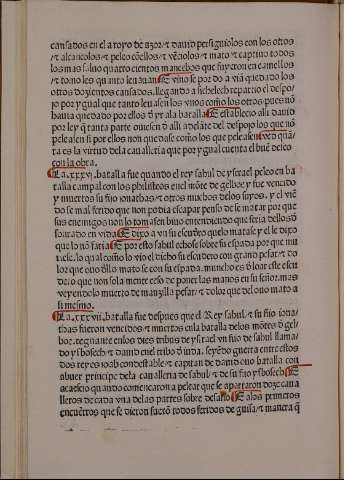 cansados en el arroyo de azor/ τ dauid persiguiolos con los otros
τ alcançolos τ peleo cõ ellos τ vẽciolos τ mato τ captiuo todos
los mas saluo quatro cientos mancebos que fuyeron en camellos
τ tomo les quanto leuauan E vino se por do auiã quedado los
otros dozientos cansados. llegando a sichelech repartio el despo
jo por y gual que tanto leuasen los vnos como los otros pues nõ
hauia quedado por ellos d̃ yr a la batalla E establecio alli dauid
por ley q̃ tanta parte ouiesen d̃ alli adelãte del despojo los que nõ
peleasen si por ellos non quedase como los que peleasen ved quã
ta es la virtud dela caualleria que por ygual cuenta el buẽ deseo
con la obra.
La .xxxvi. batalla fue quando el rey sabul de ysrael peleo en ba
talla campal con los philisteos enel mõte de gelboe y fue vencido
y muertos su fijo ionathas/ τ otros muchos delos suyos. y el viẽ
do se mal ferido que non podia escapar penso de se matar por que
sus enemigos non lo tomasen biuo entendiendo que seria dellos d̃
sonrado en vida E dixo a vn su escudero quelo matase y el le dixo
que lo nõ faria E por esto sabul echose sobre su espada por que mu
riese. lo qual como lo vio el dicho su escudero con grand pesar τ do
lor que ouo d̃llo mato se con su espada. mucho es d̃ loar este escu
dero que non sola mente ceso de poner las manos en su señor. mas
veyendolo muerto de manzilla pesar/ τ dolor que del ouo mato a
si mesmo.
La .xxxvii. batalla fue despues que el Rey sabul/ τ su fijo iona
thas fueron vencidos τ muertos enla batalla delos mõtes d̃ gel
boe. regnante enlos diez tribus de ysrael vn fijo de sabul llama/
do ysboseth/ τ dauid enel tribo d̃ iuda. seyẽdo guerra entre estos
dos reyes ioab condestable/ τ capitan de dauid ouo batalla con
abner principe dela caualleria de sabul/ τ de su fijo ysboseth E
acaescio quando comencaron a pelear que se apartaron doze caua
lleros de cada vna delas partes sobre desafio E alos primeros
encuẽtros que se dieron fuerõ todos feridos de guisa/ τ manera q̃